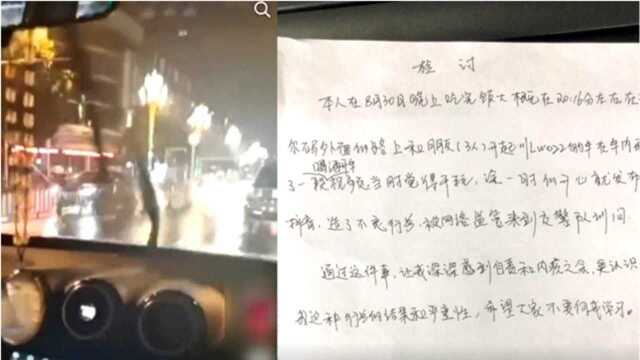 检讨
本人在8月30日晚上吃完饭大概在20:16分左右在
路上和朋友(3人)开起川的车在车内
喝酒开车
了一段视频当时觉得开玩,一时开心就发布
抖音,造了不良行为,被网络监管来到交警队训问
通过这件事,让我深深感到自责和内疚之余,更认识
这种行为的结果和严重性,希望大家不要向我学习。